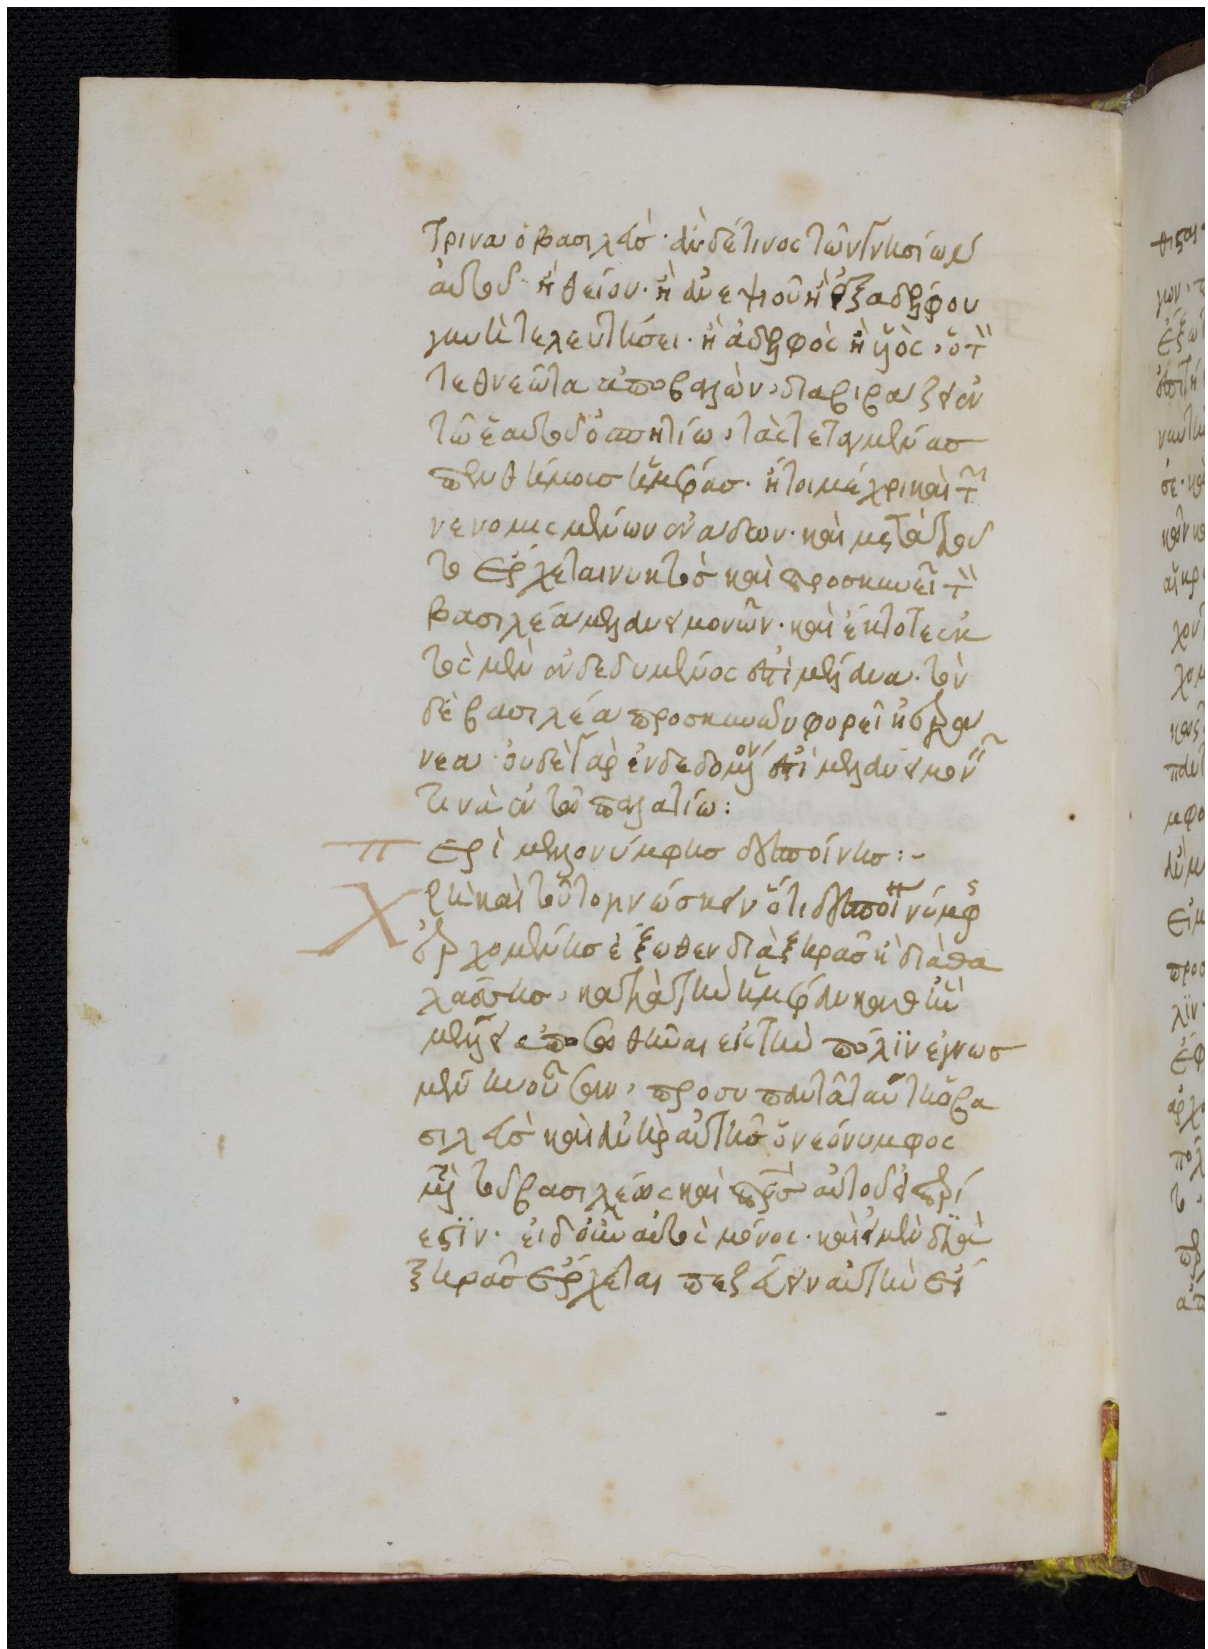 τρινα ὁ βασιλεύς· ἂν δέ τινος τῶν γνησίων
αὐτοῦ· ἢ θείου· ἢ ἀνεψιοῦ ἢ ἐξαδέλφου
γαμετὴ τελευτήσει· ἢ ἀδελφὸς ἢ υἱὸς, ὁ τὸν
τεθνεῶτα ἀποβαλὼν, διαβιβάζει ἐν
τῶ ἑαυτοῦ ὁσπητίω, τὰς τεταγμένας
πενθήμους ἡμέρας· ἤτοι μέχρι καὶ τῶν
νενομισμένων ἐνάτων· καὶ μετὰ τοῦ
το ἔρχεται νυκτὸς καὶ προσκυνεῖ τὸν
βασιλέα μελανειμονῶν· καὶ ἔκτοτε ἐκ
τὸς μὲν ἐνδεδυμένος ἐστὶ μέλανα· τὸν
δὲ βασιλέα προσκυνῶν φορεῖ ἠερα
νεα· οὐδὲ γὰρ ἐνδεδομένον ἐστὶ μελανειμονεῖν
τινὰ ἐν τῶ παλατίω:
Περὶ μελλονύμφης δεσποίνης:-
Χρὴ καὶ τοῦτο γινώσκειν ὅτι δεσποίνης νύμφης
ἐρχομένης ἔξωθεν διὰ ξηρᾶς ἢ διὰ θα
λάσσης, κατὰ τὴν ἡμέραν καθ' ἣν
μέλλει ἀποσωθῆναι εἰς τὴν πόλϊν ἐγνωσ
μένην οὖσαν, προσυπαντᾶ ταύτην ὁ βα
σιλεὺς καὶ ἀνὴρ αὐτῆς ὁ νεόνυμφος
μετὰ τοῦ βασιλέως καὶ πατρὸς αὐτοῦ εἰ περί
εστϊν· εἰ δ' οὖν αὐτὸς μόνος· καὶ εἰ μὲν διὰ
ξηρᾶς ἔρχεται πεζεύειν αὐτὴν